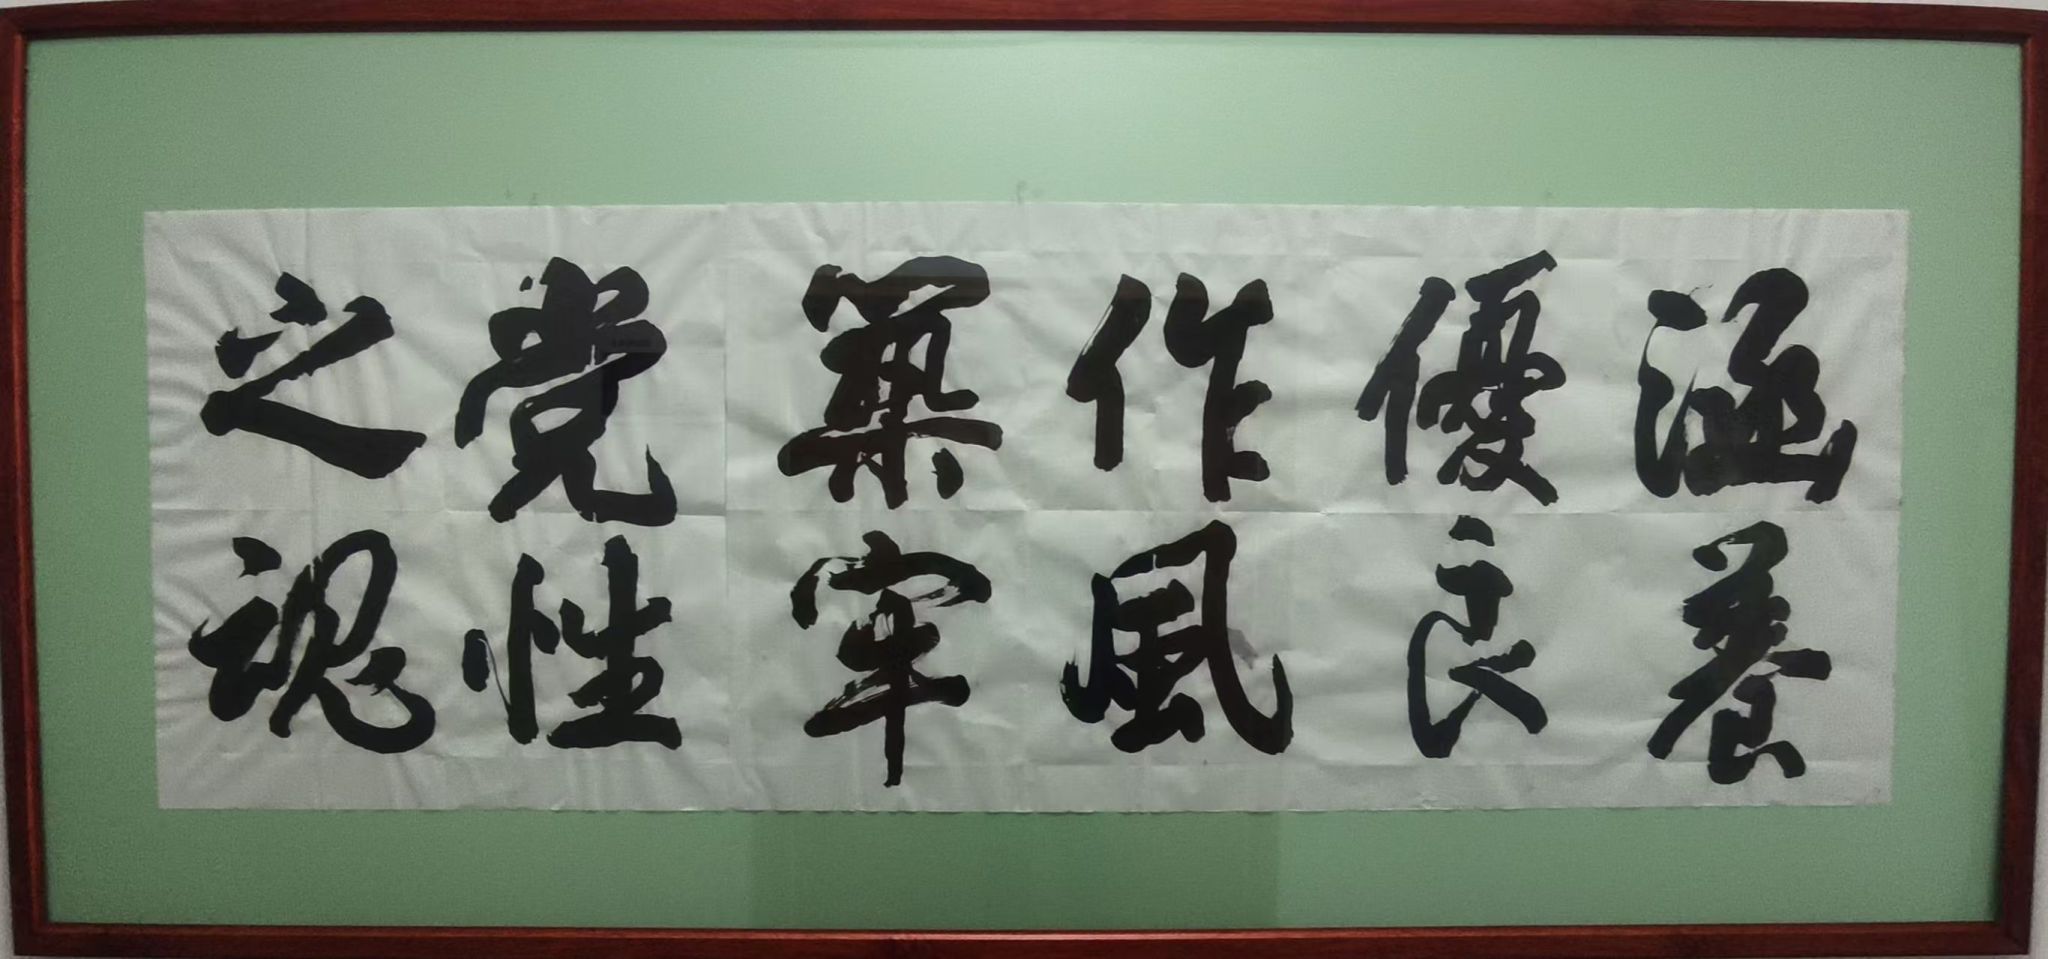 涵養
優良
作風
築牢
党性
之魂